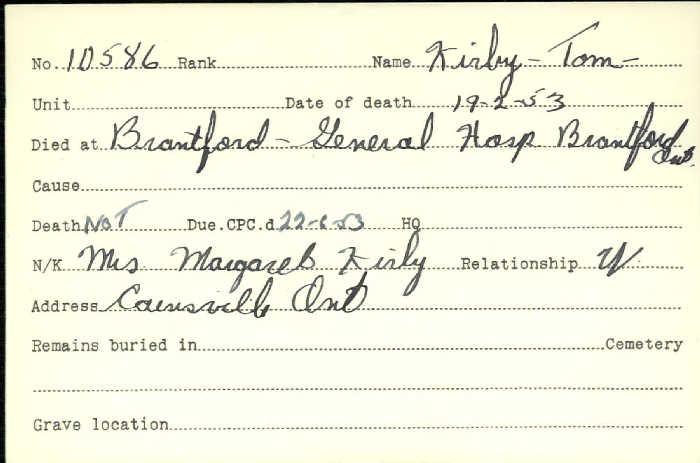 No. 10586 Rank Name Kirby - Tom -
Unit Date of death 19-2-53
Died at Brantford - General Hosp Brantford Ont.
Cause
Death NOT Due. CPC.d 22-6-53 HQ
N/K Mrs Margaret Kirby Relationship W
Address Cainsville Ont
Remains buried in Cemetery
Grave location